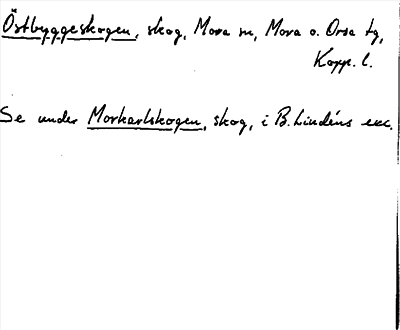 Östbyggeskogen, skog, Mora sn, Mora o. Orsa tg,
Kopp. l.
Se under Morkarlskogen, skog, i B. Lindéns exc.